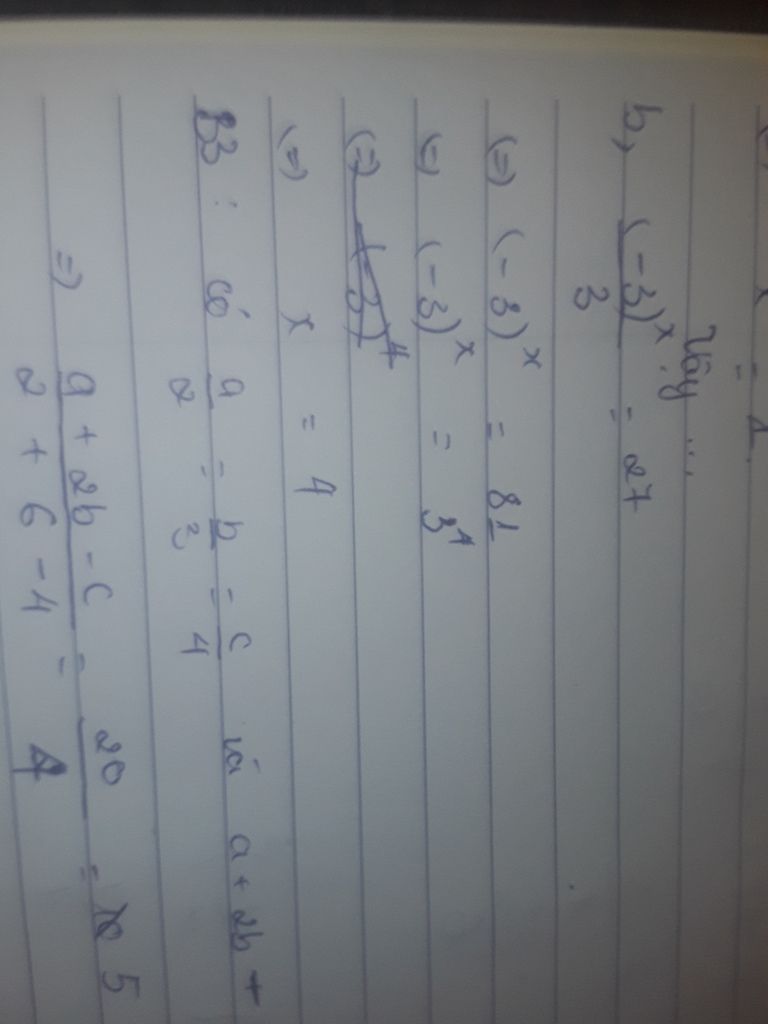 x = 1
Vậy ...
b, (-3)^x / 3 = 27
(=) (-3)^x = 81
(=) (-3)^x = 3^4
(=) (-3)^4
(=) x = 4
B3 : có a/2 = b/3 = c/4 và a + 2b +
=) a + 2b - c / 2 + 6 - 4 = 20/4 = 5